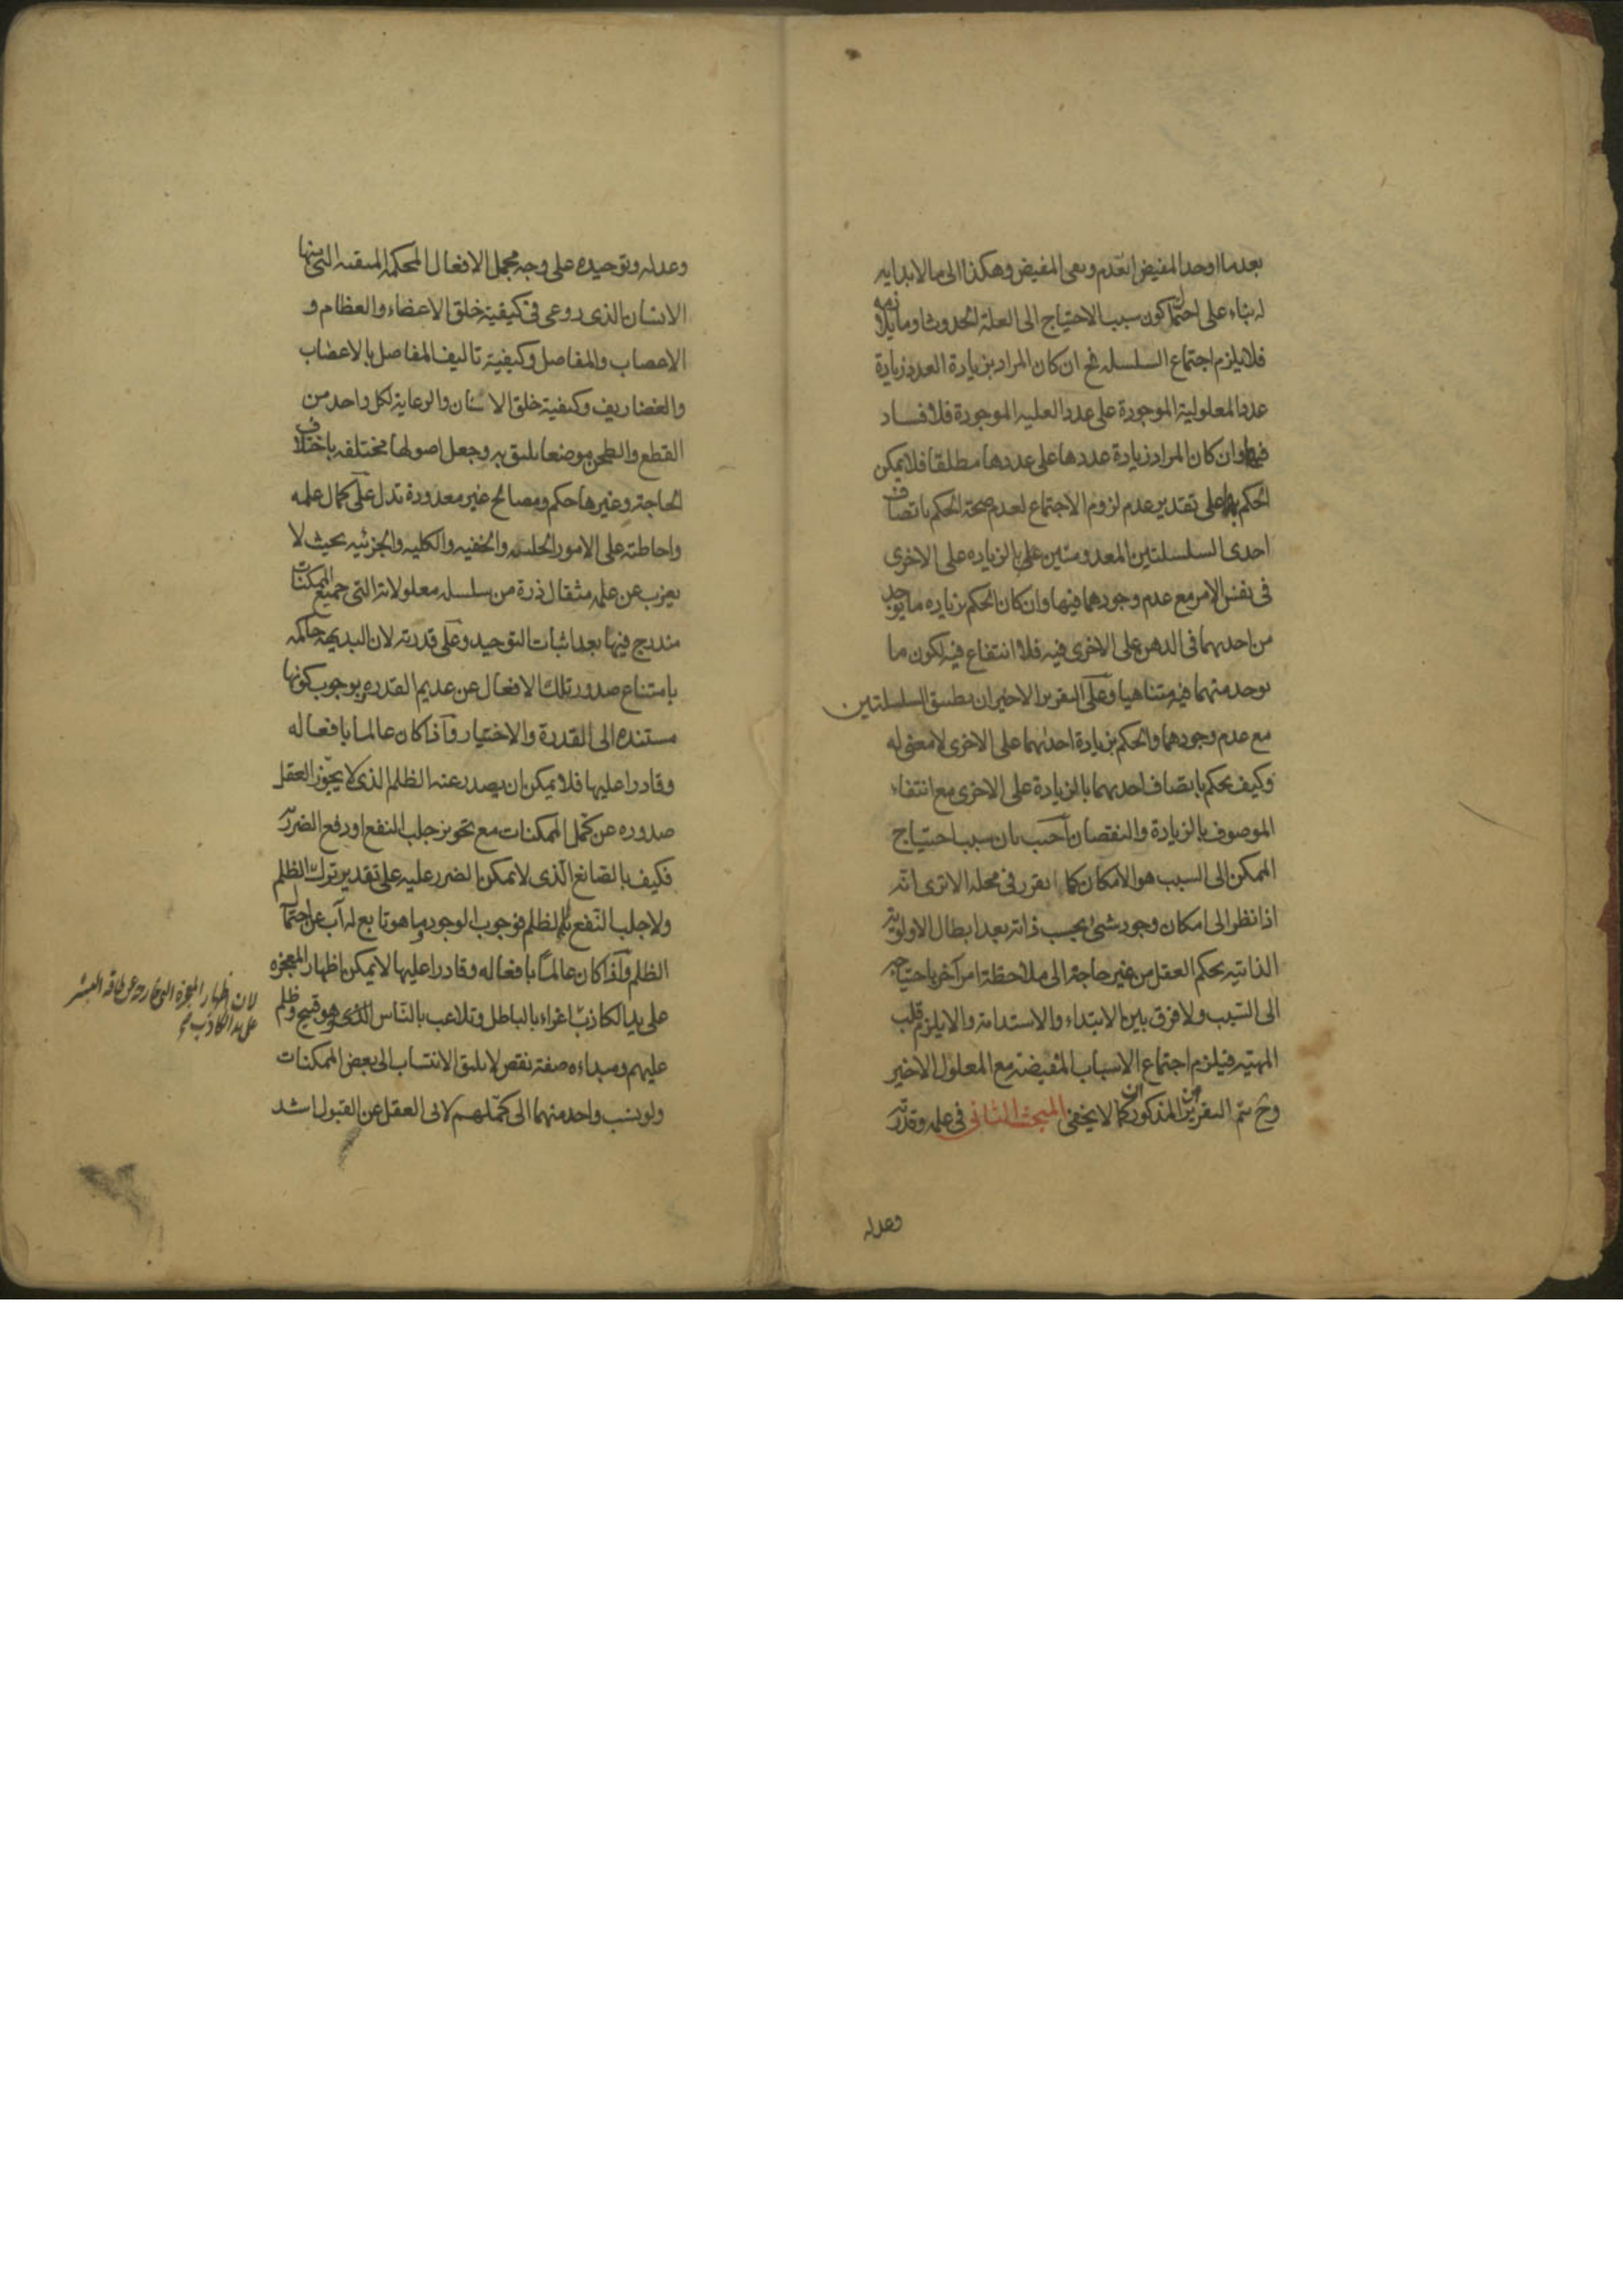 بعد ما اوجد المفيض انعدم وبقى المفيض وهكذا الى ما لا بداية
له بناء على احتمال كون سبب الاحتياج الى العلة الحدوث او ما يلازمه
فلا يلزم اجتماع السلسله فح ان كان المراد بزيادة العدد زيادة
عدد المعلولية الموجودة على عدد العلية الموجودة فلا فساد
فيها وان كان المراد زيادة عددها على عددها مطلقا فلا يمكن
الحكم بها على تقدير عدم لزوم الاجتماع لعدم صحة الحكم باتصاف
احدى السلسلتين المعدومتين بالزياده على الاخرى
فى نفس الامر مع عدم وجودهما فيها وان كان الحكم بزياده ما يوجد
من احديهما فى الذهن على الاخرى فيه فلا انتفاع فيه لكون ما
يوجد منهما فيه متناهيا وعلى التقرير الاخير ان تطبيق السلسلتين
مع عدم وجودهما والحكم بزيادة احديهما على الاخرى لا معنى له
وكيف يحكم باتصاف احديهما بالزيادة على الاخرى مع انتفاء
الموصوف بالزيادة والنقصان اجيب بان سبب احتياج
الممكن الى السبب هو الامكان كما تقرر فى محله الا ترى انه
اذا نظر الى امكان وجود شئ بحسب ذاته بعد ابطال الاولوية
الذاتيه يحكم العقل من غير حاجة الى ملاحظة امر آخر باحتياجه
الى السبب ولا فرق بين الابتداء والاستدامة والا يلزم قلب
المهية فيلزم اجتماع الاسباب المفيضة مع المعلول الاخير
وح يتم التقريران المذكوران كما لا يخفى المبحث الثانى فى علمه وقدرته
وعدله
وعدله وتوحيده على وجه مجمل الافعال المحكمة المتقنه التى منها
الانسان الذى روعى فى كيفية خلق الاعضاء والعظام و
الاعصاب والمفاصل وكيفية تاليف المفاصل بالاعصاب
والغضاريف وكيفية خلق الاسنان والرعاية لكل واحد من
القطع والطحن موضعا يليق به وجعل اصولها مختلفه باختلاف
الحاجة وغيرها حكم ومصالح غير معدودة تدل على كمال علمه
واحاطته على الامور الجليه والخفيه والكليه والجزئيه بحيث لا
يعزب عن علمه مثقال ذرة من سلسله معلولاته التى جميع الممكنات
مندرج فيها بعد اثبات التوحيد وعلى قدرته لان البديهة حاكمه
بامتناع صدور تلك الافعال عن عديم القدره وبوجوب كونها
مستنده الى القدرة والاختيار واذا كان عالما بافعاله
وقادرا عليها فلا يمكن ان يصدر عنه الظلم الذى لا يجوّز العقل
صدوره عن كمّل الممكنات مع تجويز جلب النفع او دفع الضرر
فكيف بالصانع الّذى لا يمكن الضرر عليه على تقدير ترك الظلم
ولا جلب النّفع بالظلم فوجوب الوجود وما هو تابع له آب عن احتمال
الظلم واذا كان عالمًا بافعاله وقادرا عليها لا يمكن اظهار المعجزه
على يد الكاذب اغراء بالباطل وتلاعب بالنّاس الذى هو قبيح وظلم
عليهم ومبداءه صفة نقص لا يليق الانتساب الى بعض الممكنات
ولو نسب واحد منهما الى كمّلهم لابى العقل عن القبول اشد
لان اظهار المعجزة الخارجه عن طاقه البشر
على يد الكاذب